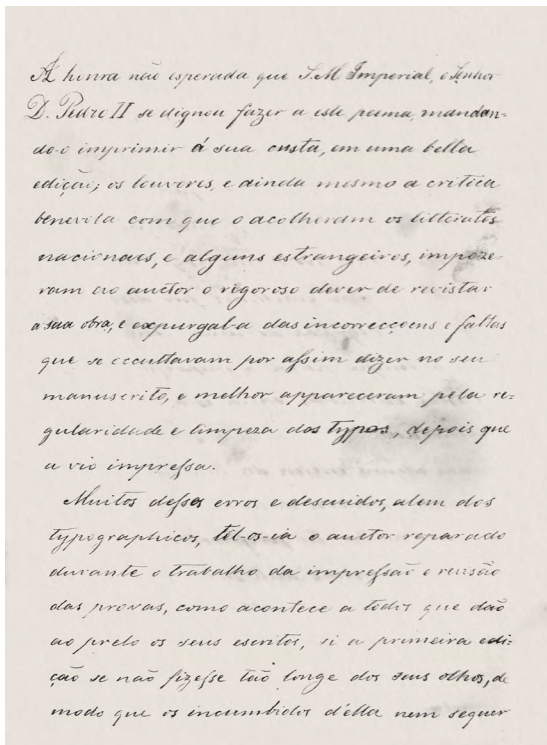 A honra não esperada que S. M. Imperial, o Senhor
D. Pedro II se dignou fazer a este poema, mandan-
do-o imprimir á sua custa, em uma bella
edição; os louvores, e ainda mesmo a critica
benevola com que o acolheram os litteratos
nacionaes, e alguns estrangeiros, impoze-
ram ao auctor o rigoroso dever de revistar
a sua obra, e expurgal-a das incorrecçoens e faltas
que se occultavam por assim dizer no seu
manuscrito, e melhor appareceram pela re-
gularidade e limpeza dos typos, depois que
a vio impressa.
Muitos desses erros e descuidos, alem dos
typographicos, tel-os-ia o auctor reparado
durante o trabalho da impressão e revisão
das provas, como acontece a todos que dão
ao prelo os seus escritos, si a primeira edi-
ção se não fizesse tão longe dos seus olhos, de
modo que os incumbidos d'ella nem sequer